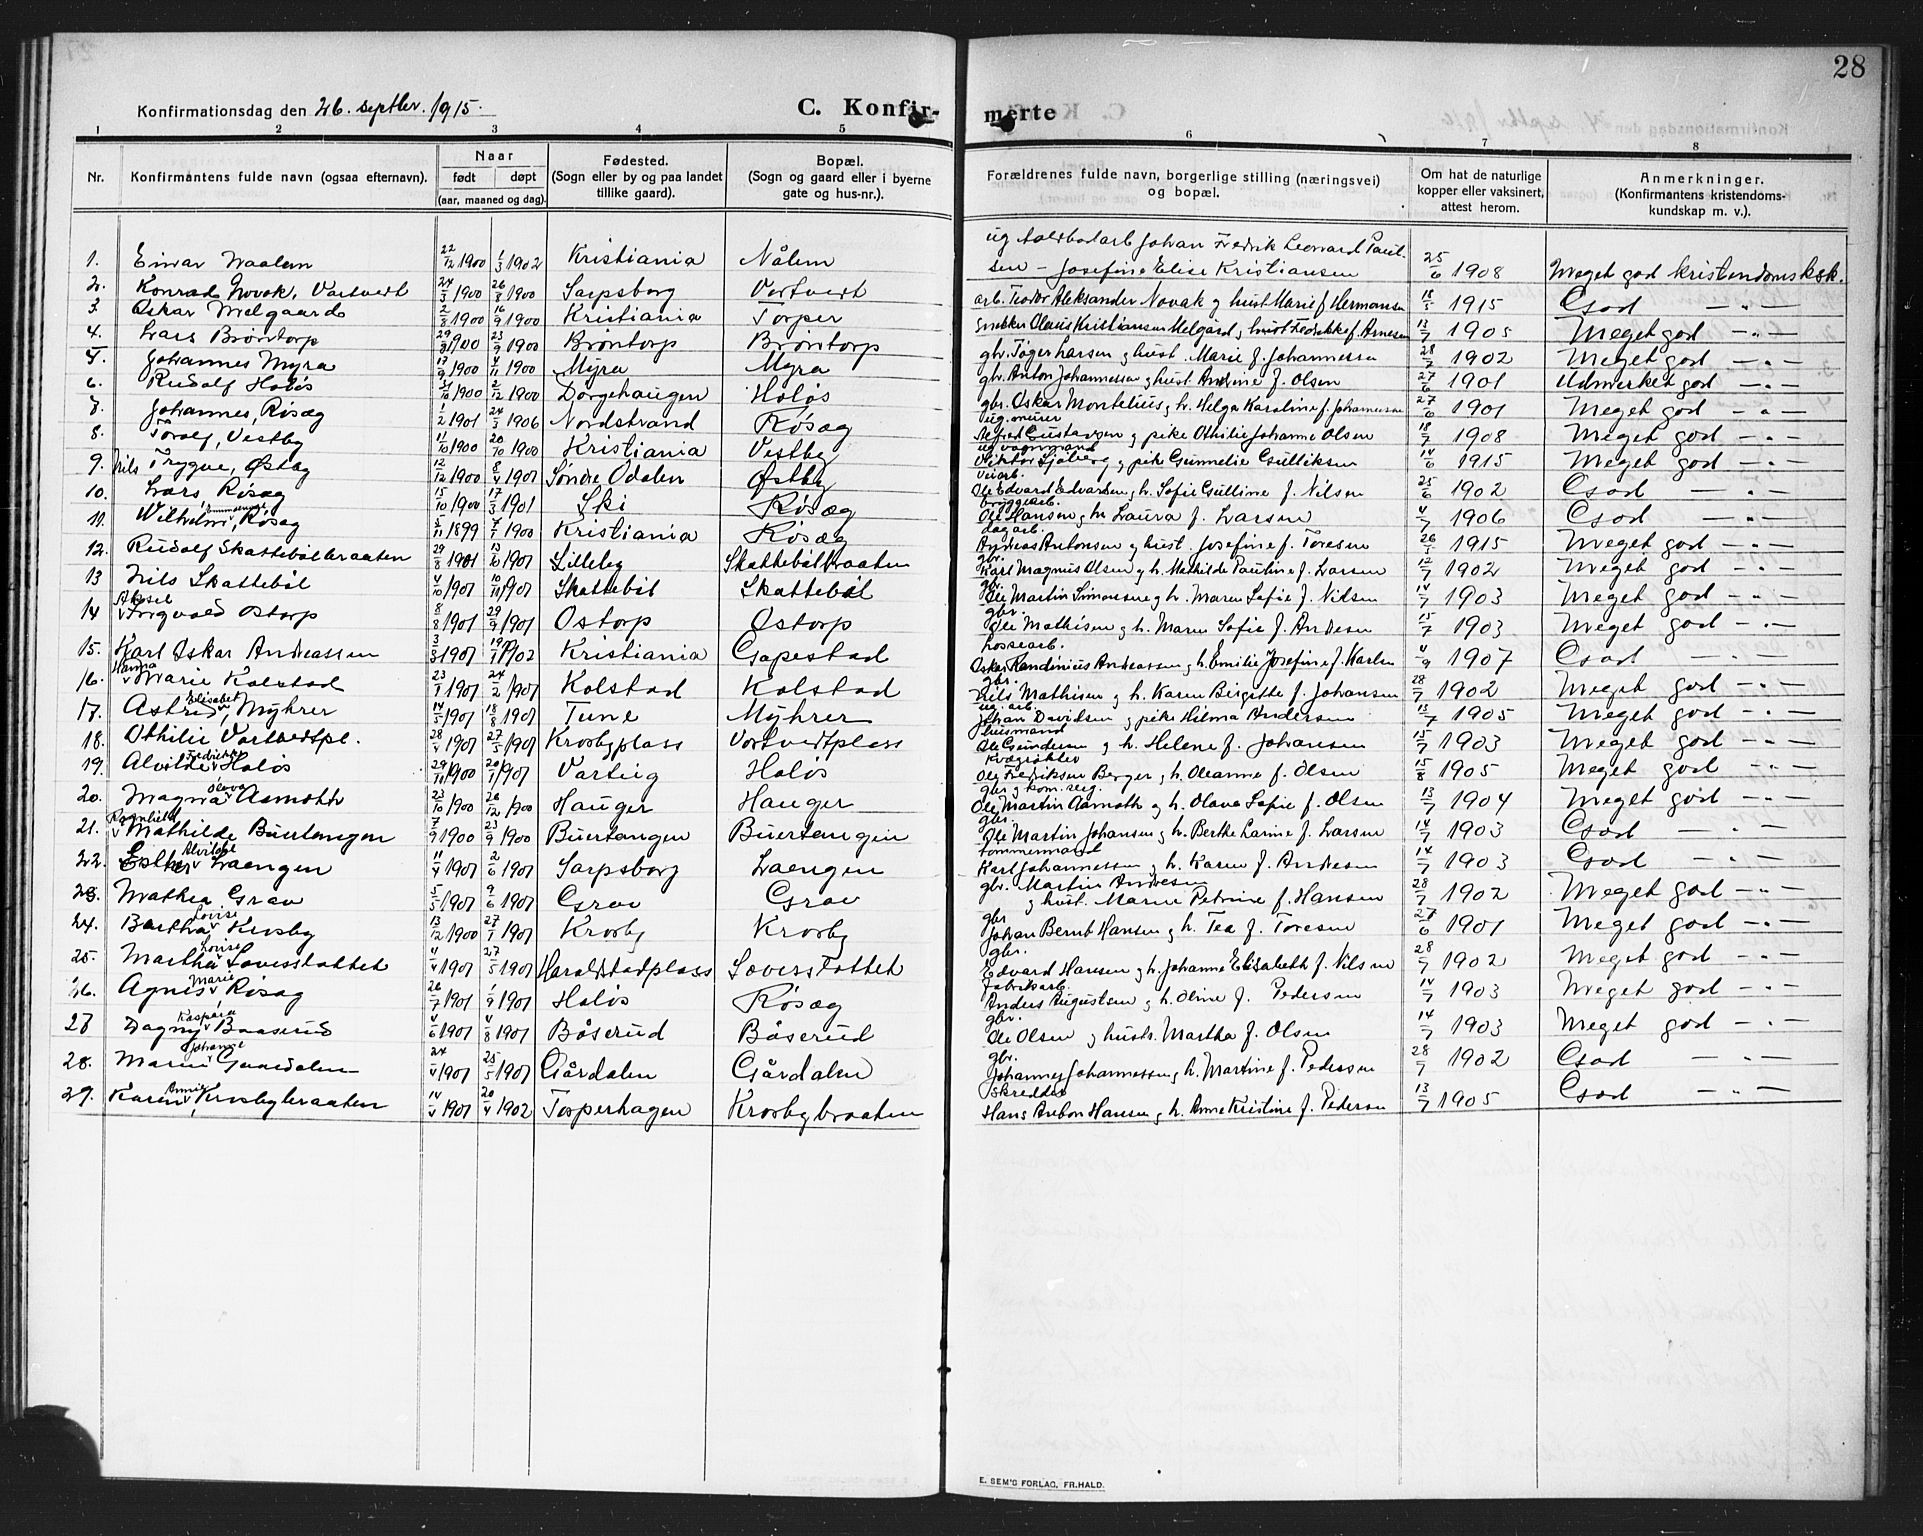 28
Konfirmationsdag den 26. septbr. 1915.
C. Konfir-
merte
1 2 3 4 5 6 7 8
Nr. Konfirmantens fulde navn (ogsaa efternavn). Naar født døpt (aar, maaned og dag). Fødested. (Sogn eller by og paa landet tillike gaard). Bopæl. (Sogn og gaard eller i byerne gate og hus-nr.). Forældrenes fulde navn, borgerlige stilling (næringsvei) og bopæl. Om hat de naturlige kopper eller vaksinert, attest herom. Anmerkninger. (Konfirmantens kristendoms-kundskap m. v.).
1. Einar Naalem 22/12 1900 1/3 1902 Kristiania Nålem Johan Fredrik Leonard Paulsen – Josefine Elise Kristiansen 25/6 1908 Meget god kristendomsksk.
2. Konrad Novak, Vortvett 24/3 1900 26/8 1900 Sarpsborg Vortvett arb. Teodor Aleksander Novak g hust Marie f. Hermansen 18/5 1915 God – " –
3. Oskar Melgaard 2/8 1900 16/9 1900 Kristiania Torper Snekker Olaus Kristiansen Melgård g hust Fredrikke f. Arnesen 13/7 1905 Meget god – " –
4. Lars Bröntorp 29/8 1900 23/9 1900 Bröntorp Bröntorp gbr. Töger Larsen g hust. Marie f. Johannessen 28/7 1902 Meget god – " –
5. Johannes Myra 17/9 1900 4/11 1900 Myra Myra gbr. Anton Johannessen g hust. Andrine f. Olsen 27/6 1901 Udmerket god – " –
6. Rudolf Holøs 31/10 1900 2/12 1900 Dørgehaugen Holøs gbr. Oskar Montelius g h. Helga Karoline f. Johannesen 27/6 1901 Meget god – " –
7. Johannes, Røsæg 1/2 1901 24/3 1906 Nordstrand Røsæg ug. murer Alfred Gustavsen g pike Othilie Johanne Olsen 18/7 1908 Meget god – " –
8. Torolf, Vestby 11/10 1900 20/10 1900 Kristiania Vestby ug vognmand Viktor Sjöberg g pike Gunnelie Gulliksen 14/6 1915 Meget god – " –
9. Nils Trygve, Østby 12/12 1900 8/4 1901 Søndre Odalen Østby Veiarb. Ole Edvard Edvardsen g h. Sofie Gulline f. Nilsen 25/6 1902 God – " –
10. Lars Røsæg 15/10 1900 17/3 1901 Ski Røsæg bryggearb. Ole Hansen g h. Laura f. Larsen 4/7 1906 God – " –
11. Wilhelm Emmanuel Røsæg 5/11 1899 7/1 1900 Kristiania Røsæg dagarb. Andreas Antonsen g hust. Josefine f. Toresen 26/1 1915 Meget god – " –
12. Rudolf Skattebölbraaten 29/8 1901 13/10 1901 Lilleby Skattebölbraaten gbr. Karl Magnus Olsen g h. Mathilde Pauline f. Larsen 12/7 1902 Meget god – " –
13 Nils Skatteböl 4/10 1901 10/11 1901 Skatteböl Skatteböl gbr. Ole Martin Simonsen g h. Maren Sofie f. Nilsen 14/7 1903 Meget god – " –
14 Aksel Ingvald Ostorp 8/8 1901 29/9 1901 Ostorp Ostorp gbr. Ole Mathisen g h. Maren Sofie f. Andersen 15/7 1903 Meget god – " –
15. Karl Oskar Andreassen 3/3 1901 19/1 1902 Kristiania Gapestad Lossearb. Oskar Randinius Andreassen g h. Emilie Josefine f. Karlsen 4/9 1907 God – " –
16. Hanna Marie Kolstad 23/1 1901 24/2 1901 Kolstad Kolstad gbr. Nils Mathisen g h. Karen Birgitte f. Johansen 28/7 1902 Meget god – " –
17. Astrid Elisabet, Myhrer 14/5 1901 18/8 1901 Tune Myhrer ug. arb. Johan Davidsen g pike Hilma Andersen 13/7 1905 Meget god – " –
18. Othilie Vortvedtpl. 28/4 1901 27/5 1901 Krosbyplass Vortvedtplass husmand Ole Gundersen g h. Helene f. Johansen 15/7 1903 Meget god – " –
19. Alvilde Fredrikke Holøs 29/11 1900 20/1 1901 Varteig Holøs kvægrøkter Ole Fredriksen Berger g h. Oleanne f. Olsen 15/8 1905 Meget god – " –
20. Magna Olava Aamoth 23/10 1900 26/12 1900 Hauger Hauger gbr g kom. reg. Ole Martin Aamoth g h. Olava Sofie f. Olsen 13/7 1904 Meget god – " –
21. Ragnhild Mathilde Buertangen 7/9 1900 23/9 1900 Buertangen Buertangen gbr. Ole Martin Johansen g h. Berthe Larine f. Larsen 14/7 1903 God – " –
22. Esther Alvilde Laengen 11/4 1901 2/6 1901 Sarpsborg Laengen Tømmermand Karl Johannessen g h. Karen f. Andersen 14/7 1903 God – " –
23. Mathea Grav 5/5 1901 9/6 1901 Grav Grav gbr. Martin Andresen g hust. Maren Petrine f. Hansen 28/7 1902 Meget god – " –
24. Bertha Lovise Krosby 13/12 1900 27/1 1901 Krosby Krosby gbr Johan Bernt Hansen g h. Tea f. Toresen 27/6 1901 Meget god – " –
25. Martha Lovise Soversstøttet 4/4 1901 27/5 1901 Haraldstadplass Soversstøttet gbr. Edvard Hansen g h. Johanne Elisabeth f. Nilsen 28/7 1902 Meget god – " –
26. Agnes Marie Røsæg 26/7 1901 1/9 1901 Holøs Røsæg Fabrikarb. Anders Augustsen g h. Oline f. Pedersen 14/7 1903 Meget god – " –
27 Dagny Kaspara Baaserud 4/6 1901 4/8 1901 Båserud Båserud gbr. Ole Olsen g husts. Martha f. Olsen 14/7 1903 Meget god – " –
28. Marie Johanne Gaardalen 24/4 1901 25/5 1901 Gårdalen Gårdalen gbr. Johannes Johannessen g h. Martine f. Pedersen 28/7 1902 God – " –
29. Karen Annie, Krosbybraaten 14/4 1901 20/4 1902 Torperhagen Krosbybraaten Skredder Hans Anton Hansen g h. Anne Kristine f. Pedersen 13/7 1905 God – " –
E. SEM'S FORLAG, FR.HALD.